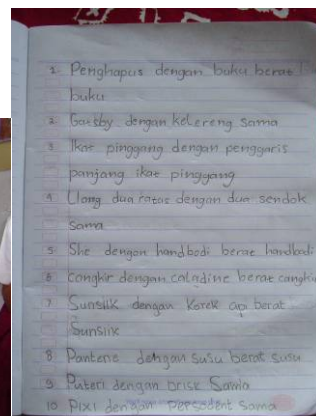 1. Penghapus dengan buku berat
buku
2 Gatsby dengan kelereng sama
3 Ikat pinggang dengan penggaris
panjang ikat pinggang
4 Uang dua ratos dengan dua sendok
sama
5 She dengan handbodi berat handbodi
6 cangkir dengan caladine berat cangkir
7 Sunsilk dengan korek api berat
Sunsilk
8 Pantene dengan susu berat susu
9 Puteri dengan brisk Sama
10 Pixi dengan Persodent Sama